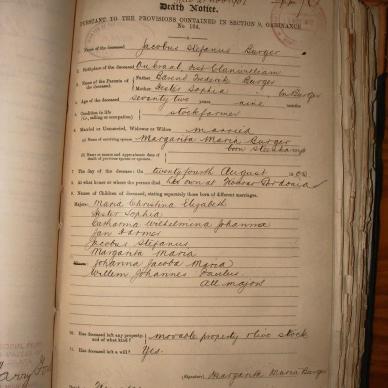 Death Notice.
PURSUANT TO THE PROVISIONS CONTAINED IN SECTION 9, ORDINANCE
No. 104.
1. Name of the deceased Jacobus Stefanus Burger
2. Birthplace of the deceased Dist Clanwilliam
3. Names of the Parents of the deceased Father Barend Frederik Burger
Mother Hester Sophia Burger
4. Age of the deceased seventy two years nine months
5. Condition in life stockfarmer
(i.e., calling or occupation)
6. Married or Unmarried, Widower or Widow married
(a) Name of surviving spouse Margarita Maria Burger
born Steenkamp
(b) Name or names and approximate date of
death of previous spouse or spouses
7. The day of the decease: On twenty fourth August
8. At what house or where the person died
9. Names of Children of deceased, stating separately those born of different marriages.
Majors Maria Christina Elizabeth
Hester Sophia
Catharina Wilhelmina Johanna
Jan Harmse
Jacobus Stefanus
Margarita Maria
Johanna Jacoba Maria
Willem Johannes Paulus
All majors
10. Has deceased left any property, and of what kind? movable property & live stock
11. Has deceased left a will? Yes.
(Signature) Margarita Maria Burger